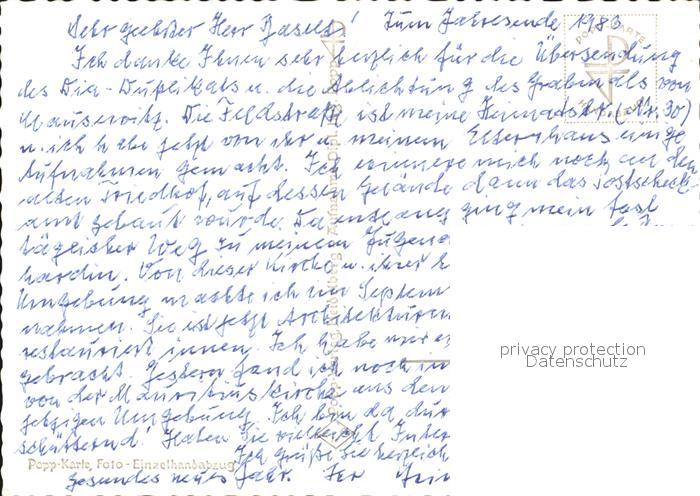 Sehr geehrter Herr Zum Jahresende 1983
Ich danke Ihnen sehr herzlich für die Übersendung
des Dia-Duplikats u. die Ablichtung des Grabmals von
Die Feldstraße ist meine Heimatstr. (Nr. 30)
u. ich habe jetzt von ihr u. meinem Elternhaus einige
Aufnahmen gemacht. Ich erinnere mich noch an den
alten Friedhof, auf dessen Gelände dann das Postscheck-
amt gebaut wurde. Da entlang ging mein fast
täglicher Weg zu meinem Jugend
Von dieser Kirche u. ihrer
Umgebung machte ich im Septem
nahmen. Sie ist jetzt Architektur
restauriert innen. Ich habe mir
gebracht. Gestern fand ich noch
von der Mauritiuskirche aus dem
jetzigen Umgebung. Ich bin da
schütternd! Haben Sie vielleicht Inter
Ich grüße Sie herzlich
gesundes neues Jahr. Ihr
Popp-Karte, Foto-Einzelhandabzug
POSTKARTE
privacy protection
Datenschutz